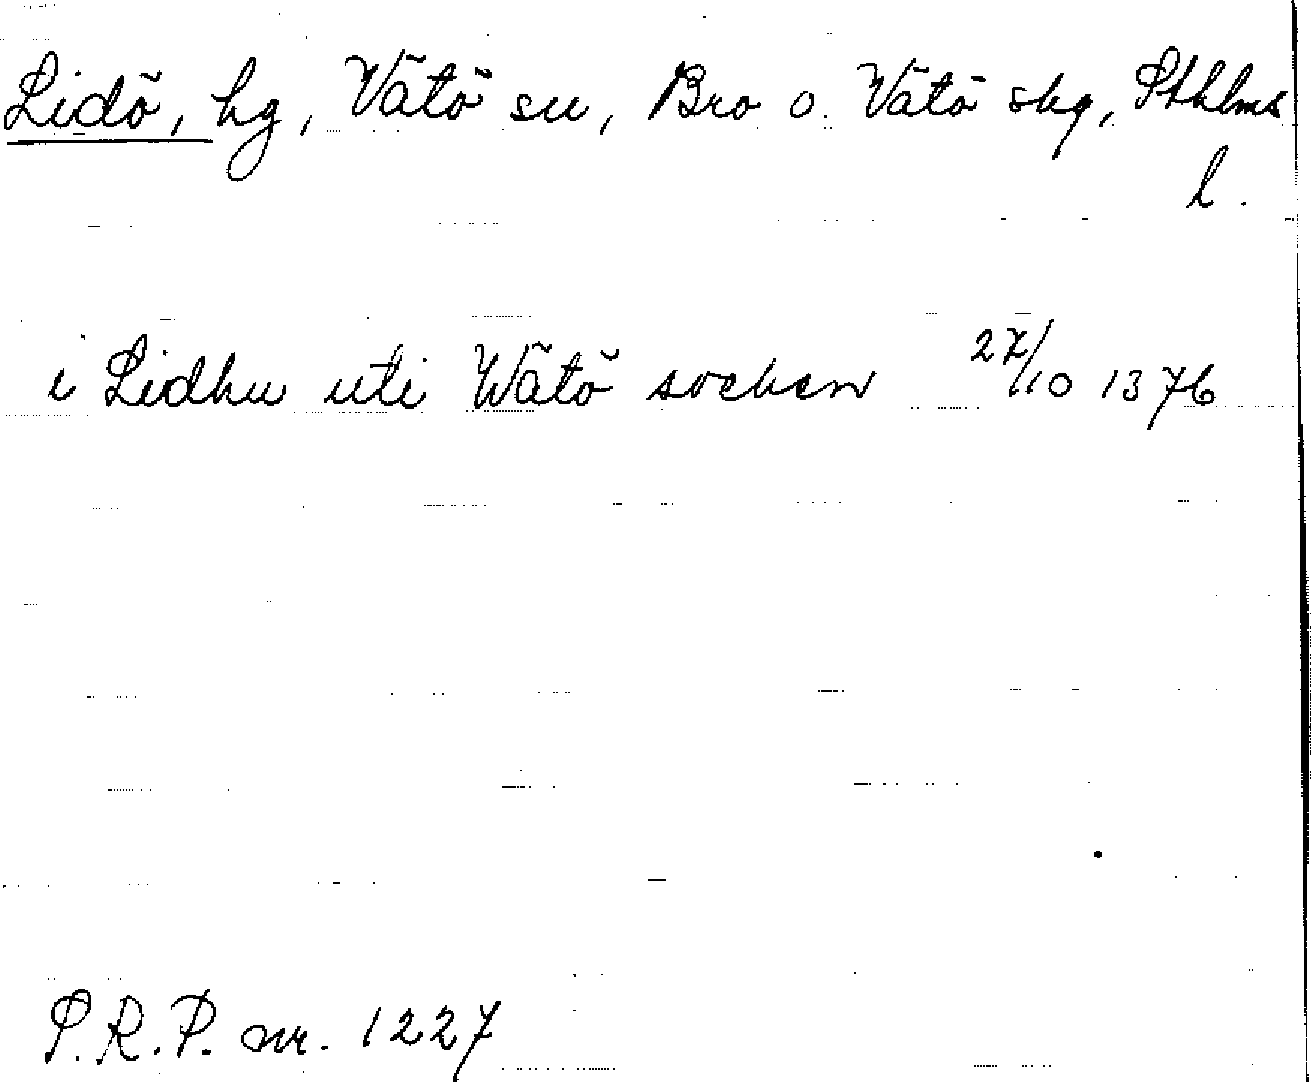 Lidö, hg, Vätö sn, Bro o. Vätö skg, Sthlms
l.
i Lidhu uti Wätö socken 27/10 1376
P.R.P. nr. 1227